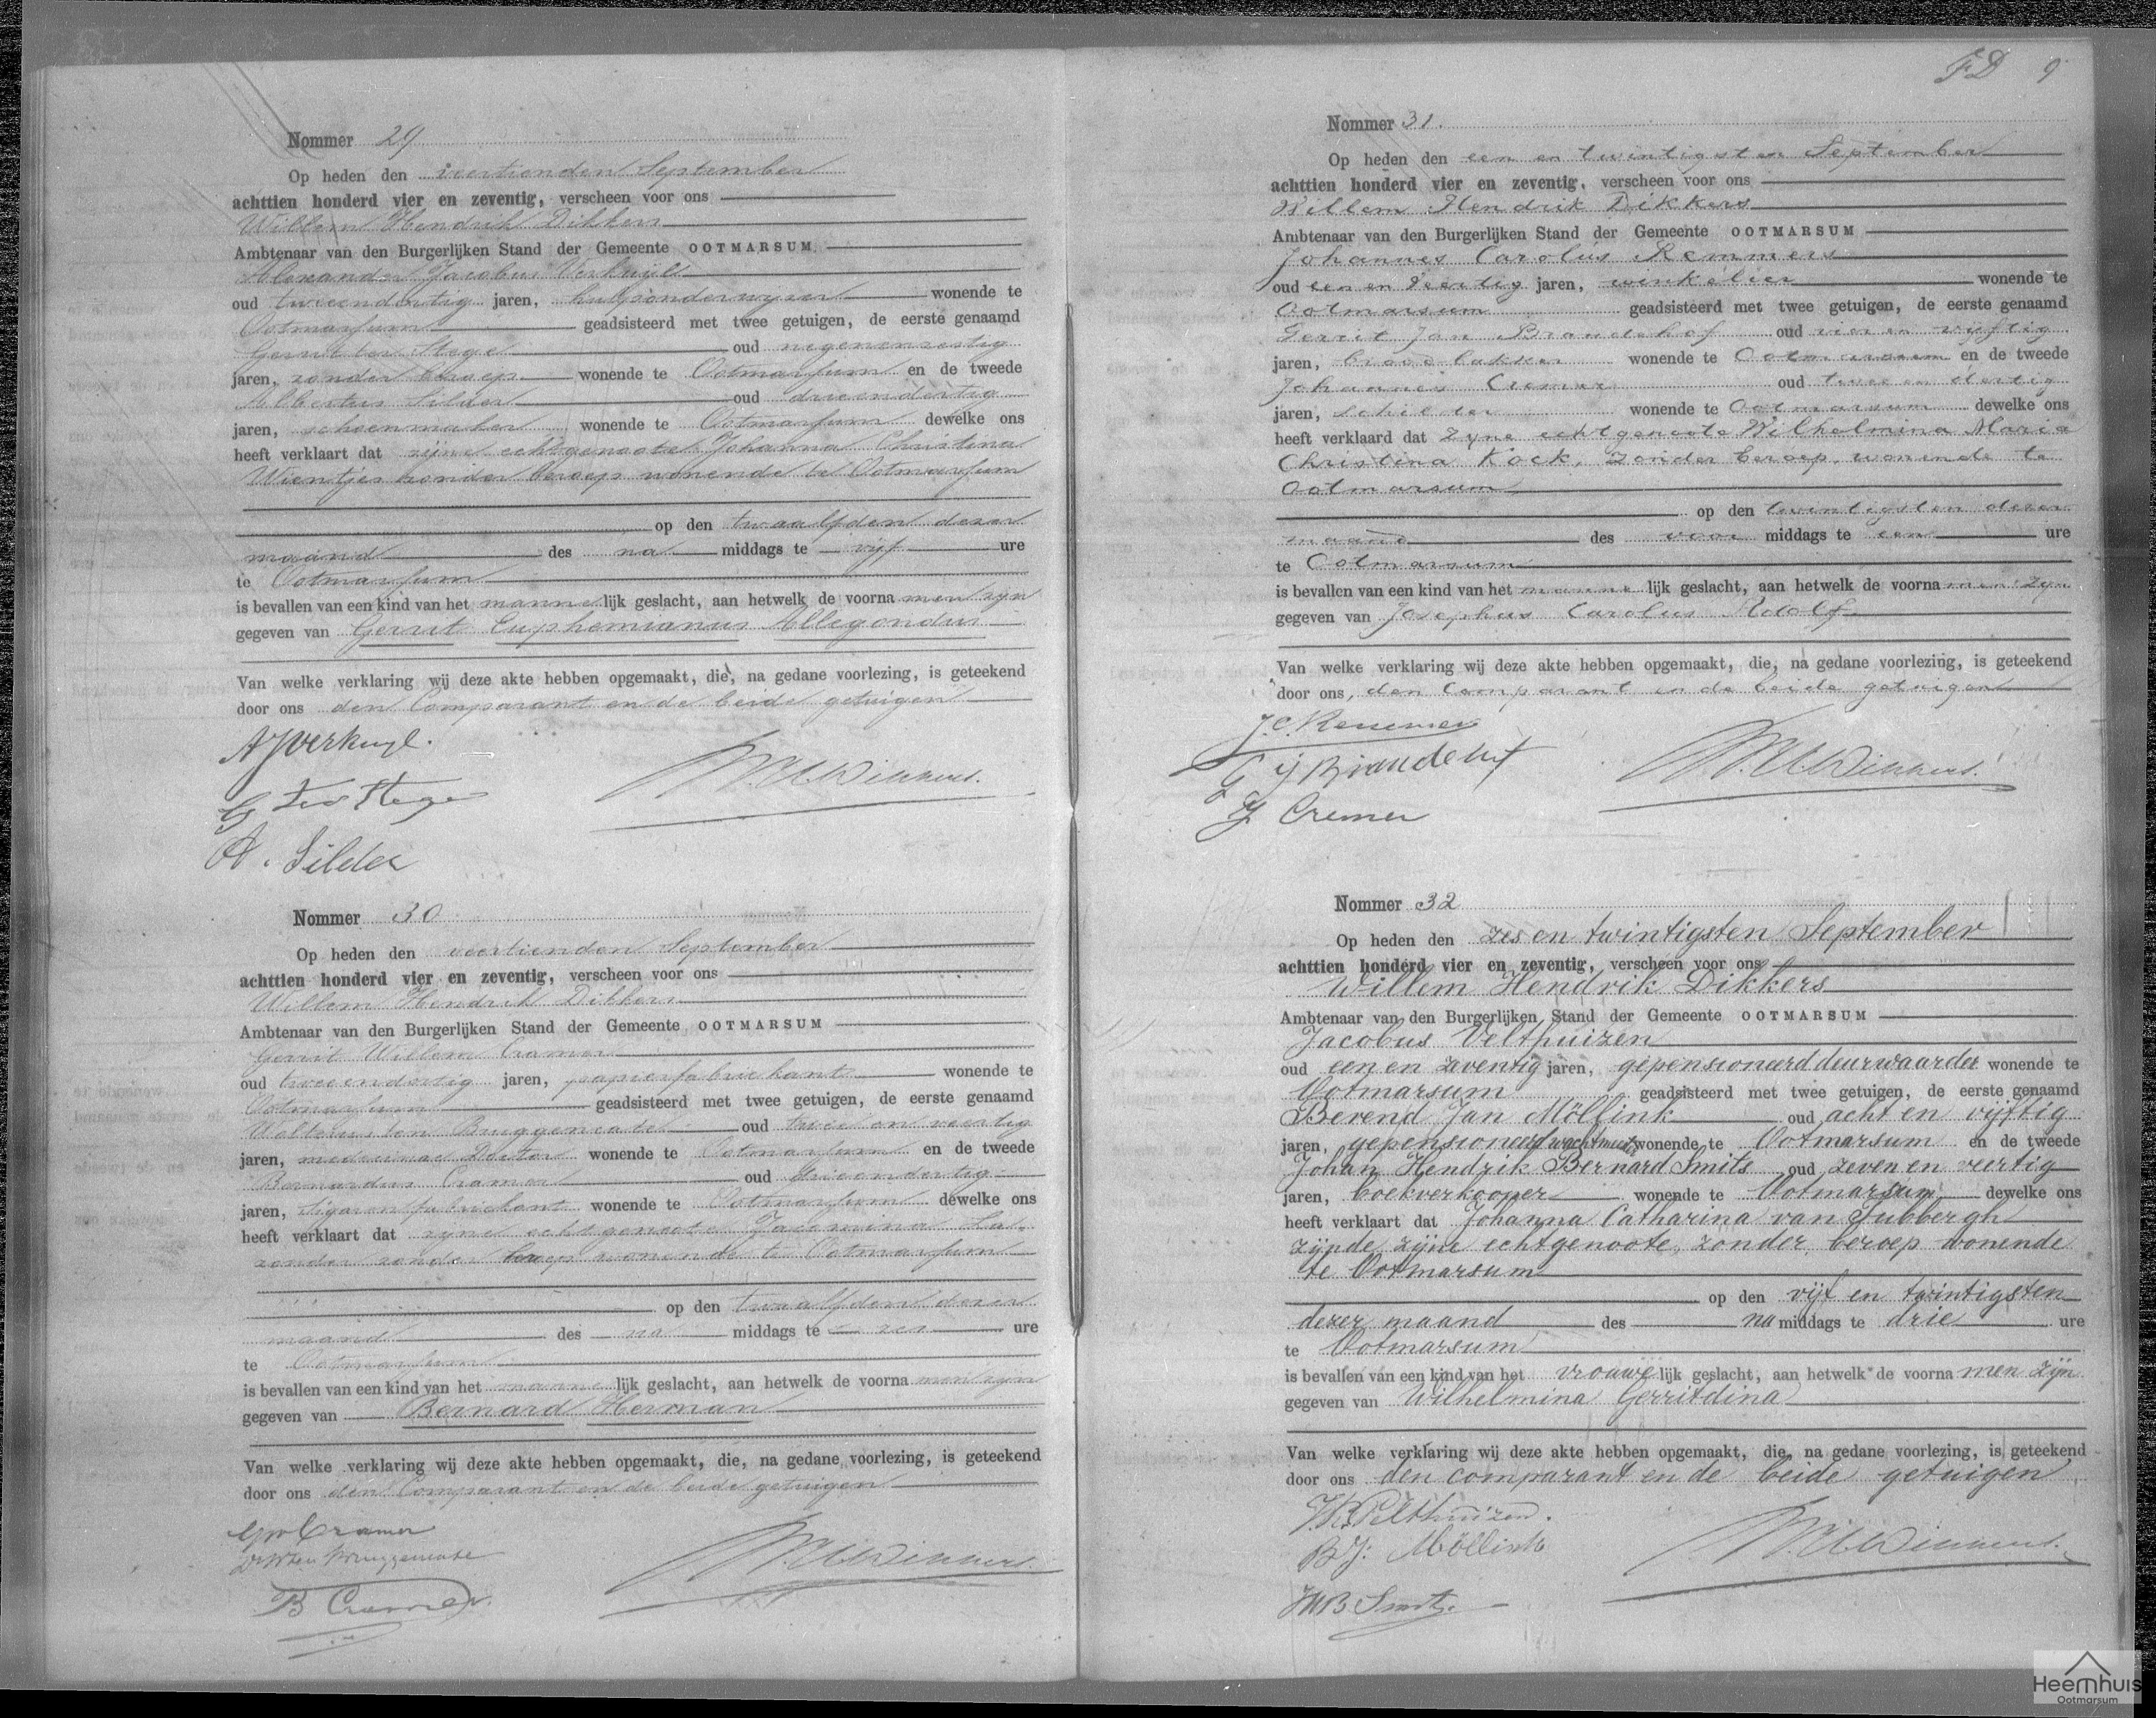 Nommer 29
Op heden den veertienden September
achttien honderd vier en zeventig, verscheen voor ons
Willem Hendrik Dikkers
Ambtenaar van den Burgerlijken Stand der Gemeente OOTMARSUM
Alexander Jacobus Verkuijl
oud tweeendertig jaren, hulponderwyzer wonende te
Ootmarsum geadsisteerd met twee getuigen, de eerste genaamd
Gerrit ter Stege oud negenenzestig
jaren, zonder beroep wonende te Ootmarsum en de tweede
Albertus Silder oud drieendertig
jaren, schoenmaker wonende te Ootmarsum dewelke ons
heeft verklaart dat zijne echtgenoote Johanna Christina
Wientjes zonder beroep wonende te Ootmarsum
op den twaalfden dezer
maand des na middags te vijf ure
te Ootmarsum
is bevallen van een kind van het manne lijk geslacht, aan hetwelk de voorna men zyn
gegeven van Gerrit Euphemianus Allegondus
Van welke verklaring wij deze akte hebben opgemaakt, die, na gedane voorlezing, is geteekend
door ons den Comparant en de beide getuigen
AJVerkuyl.
G ter Stege
A. Silder
Nommer 30
Op heden den veertienden September
achttien honderd vier en zeventig, verscheen voor ons
Willem Hendrik Dikkers
Ambtenaar van den Burgerlijken Stand der Gemeente OOTMARSUM
Gerrit Willem Cramer
oud tweeendertig jaren, papierfabriekant wonende te
Ootmarsum geadsisteerd met twee getuigen, de eerste genaamd
Wolterus ten Bruggencate oud twee en veertig
jaren, medicinae Doctor wonende te Ootmarsum en de tweede
Bernardus Cramer oud drieendertig
jaren, Sigarenfabriekant wonende te Ootmarsum dewelke ons
heeft verklaart dat zyne echtgenoote Jacomina
zonder beroep wonende te Ootmarsum
op den twaalfden dezer
maand des na middags te zes ure
te Ootmarsum
is bevallen van een kind van het manne lijk geslacht, aan hetwelk de voorna men zyn
gegeven van Bernard Herman
Van welke verklaring wij deze akte hebben opgemaakt, die, na gedane voorlezing, is geteekend
door ons den Comparant en de beide getuigen
GW Cramer
Dr W ten Bruggencate
B Cramer
FD 9
Nommer 31.
Op heden den een en twintigsten September
achttien honderd vier en zeventig, verscheen voor ons
Willem Hendrik Dikkers
Ambtenaar van den Burgerlijken Stand der Gemeente OOTMARSUM
Johannes Carolus Remmers
oud een en veertig jaren, winkelier wonende te
Ootmarsum geadsisteerd met twee getuigen, de eerste genaamd
Gerrit Jan Brandehof oud vier en vyftig
jaren, broodbakker wonende te Ootmarsum en de tweede
Johannes Cremer oud twee en dertig
jaren, schilder wonende te Ootmarsum dewelke ons
heeft verklaard dat zyne echtgenoote Wilhelmina Maria
Christina Kock, zonder beroep, wonende te
Ootmarsum
op den twintigsten dezer
maand des voor middags te een ure
te Ootmarsum
is bevallen van een kind van het manne lijk geslacht, aan hetwelk de voorna men zyn
gegeven van Josephus Carolus Rdolf
Van welke verklaring wij deze akte hebben opgemaakt, die, na gedane voorlezing, is geteekend
door ons, den comparant en de beide getuigen
J.C. Remmers
G J Brandehof
J Cremer
Nommer 32
Op heden den zes en twintigsten September
achttien honderd vier en zeventig, verscheen voor ons
Willem Hendrik Dikkers
Ambtenaar van den Burgerlijken Stand der Gemeente OOTMARSUM
Jacobus Velthuizen
oud een en zeventig jaren, gepensioneerd deurwaarder wonende te
Ootmarsum geadsisteerd met twee getuigen, de eerste genaamd
Berend Jan Möllink oud acht en vijftig
jaren, gepensioneerd wachtmeester wonende te Ootmarsum en de tweede
Johan Hendrik Bernard Smits oud zeven en veertig
jaren, boekverkooper wonende te Ootmarsum dewelke ons
heeft verklaart dat Johanna Catharina van Lubbergh
zijnde zijne echtgenoote, zonder beroep wonende
te Ootmarsum
op den vijf en twintigsten
dezer maand des na middags te drie ure
te Ootmarsum
is bevallen van een kind van het vrouwe lijk geslacht, aan hetwelk de voorna men zijn
gegeven van Wilhelmina Gerritdina
Van welke verklaring wij deze akte hebben opgemaakt, die, na gedane voorlezing, is geteekend
door ons den comparant en de beide getuigen
Velthuizen.
B.J. Möllink
JHB Smits.
Heemhuis
Ootmarsum